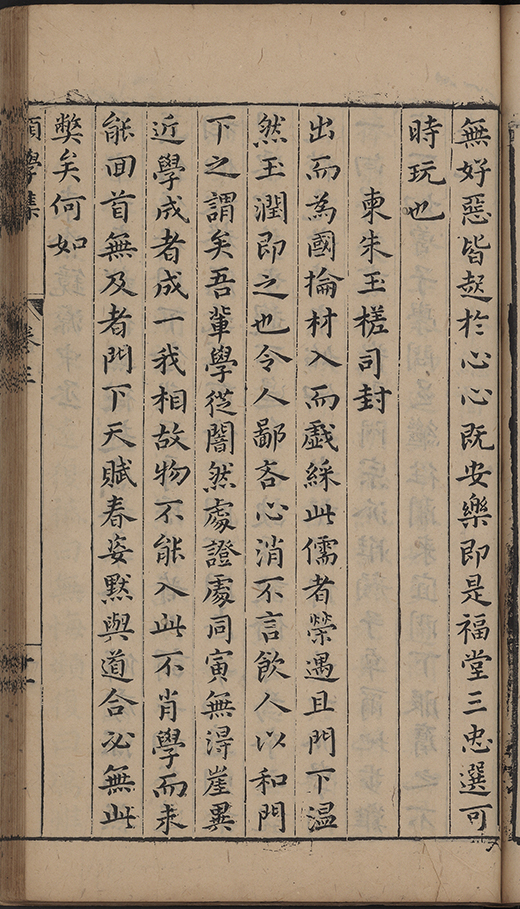 無好惡皆起於心心既安樂即是福堂三忠選可
時玩也
柬朱玉槎司封
出而為國掄材入而戯綵此儒者榮遇且門下温
然玉潤即之也令人鄙吝心消不言飲人以和門
下之謂矣吾輩學從闇然處證處同寅無淂崖異
近學戍者成一我相故物不能入此不肖學而未
能回首無及者門下天賦春姿黙與道合必無此
弊矣何如
學集
卷三